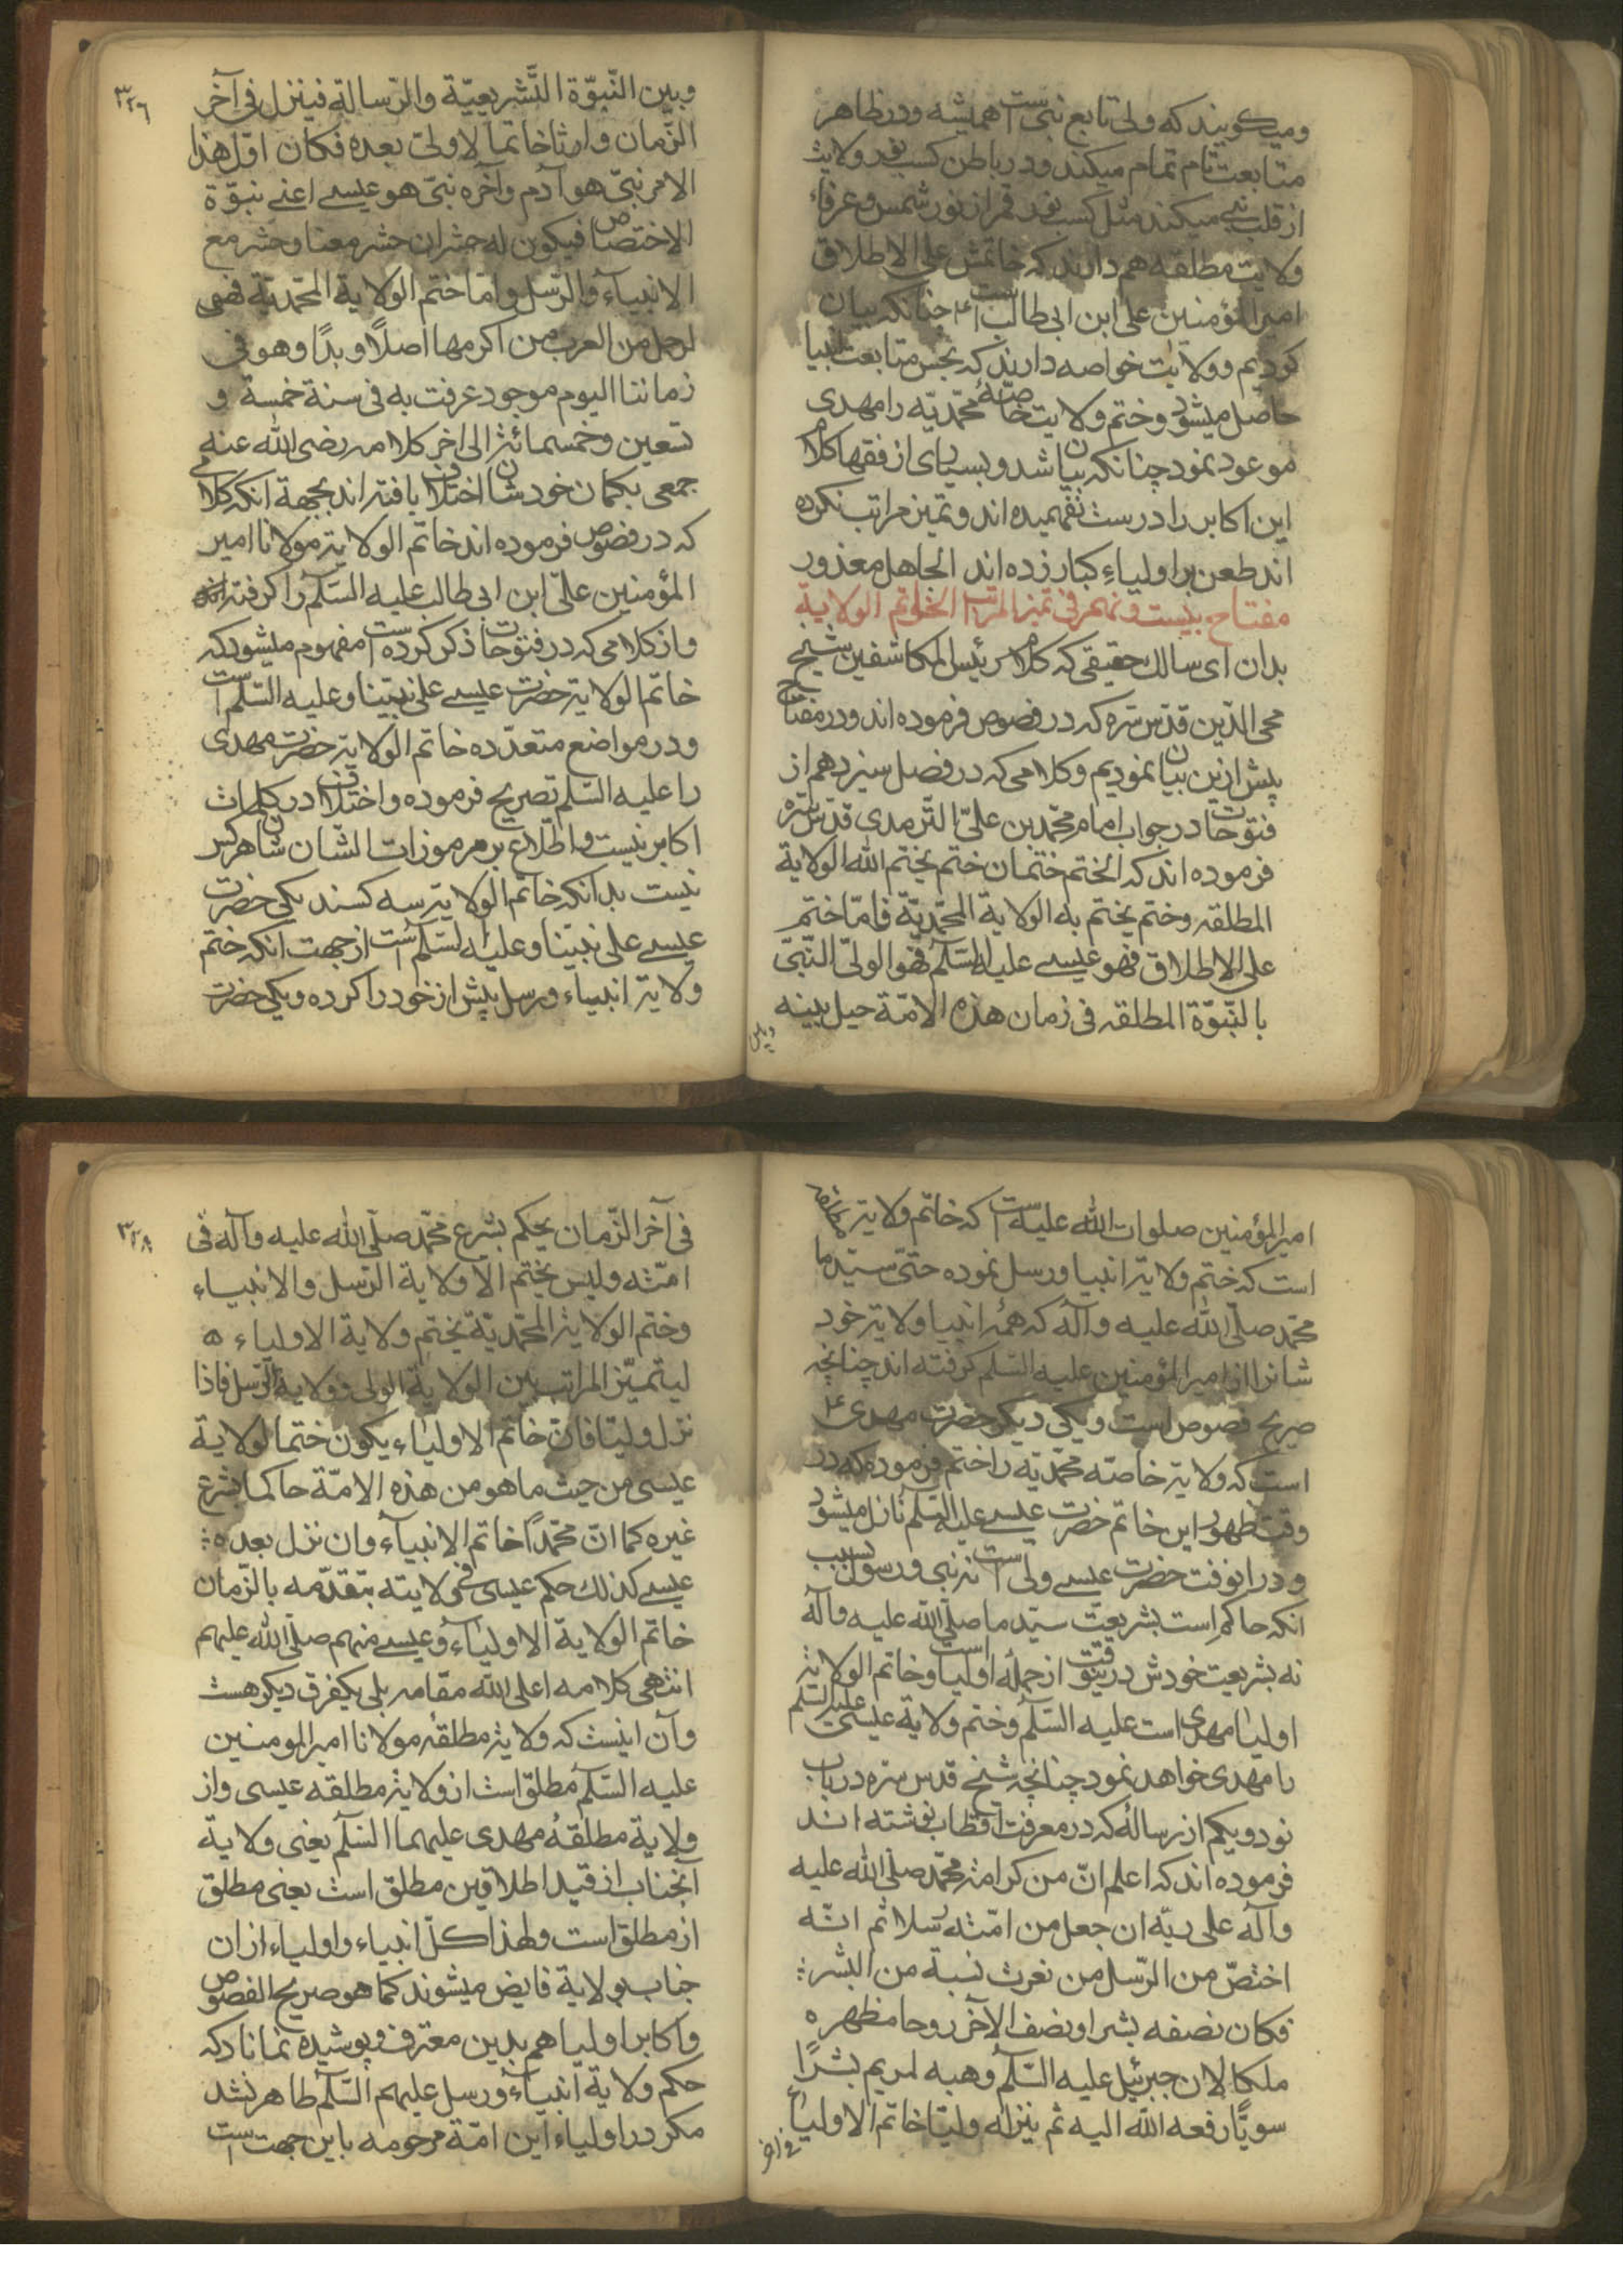 ومیکویند که ولی تابع نبی است همیشه ودر ظاهر
متابعت تام تمام میکند ودر باطن کسب نور ولایت
از قلب نبی میکند مثل کسب نور قمر از نور شمس وعرفاء
ولایت مطلقه هم دارند که خاتمش علی الاطلاق
امیر المؤمنین علی ابن ابی طالب است ۴ چنانکه بیان
کردیم وولایت خواصه دارند که بجس متابعت انبیا
حاصل میشود وختم ولایت خاصّهٔ محمّدیّه را مهدی
موعود نمود چنانکه بیان شد وبسیاری از فقها کلام
این اکابر را درست نفهمیده اند وتمیز مراتب نکرده
اند طعن بر اولیاءِ کبار زده اند الجاهل معذور
مفتاح بیست ونهم فی تمیز المراتب الخاتم الولایة
بدان ای سالك حقیقی که کلام رئیس المکاشفین شیخ
محی الدّین قدّس سّره که در فصوص فرموده اند ودر مفتاح
پیش ازین بیان نمودیم وکلامی که در فصل سیزدهم از
فتوحات در جواب امام محمّد بن علیّ التّرمدی قدّس سّره
فرموده اند که الختم ختمان ختم یختم الله الولایة
المطلقه وختم یختم به الولایة المحمّدیّة فامّا ختم
علی الاطلاق فهو عیسے علیه السّلم فهو الولیّ النّبیّ
بالنّبوّة المطلقه فی زمان هذه الامّة حیل بینه
وبین
۳۲۶
وبین النّبوّة التّشریعیّة والرّسالة فینزل فی آخر
الزّمان وارثا خاتماً لا ولیّ بعده فکان اوّل هذا
الامر نبیّ هو آدم وآخره نبیّ هو عیسے اعنے نبوّة
الاختصاص فیکون له حشران حشر معنا وحشر مع
الانبیاء والرّسل وامّا ختم الولایة المحمّدیّة فهی
لرجل من العرب من اکرمها اصلًا وبدًا وهو فی
زماننا الیوم موجود عرفت به فی سنة خمسة و
تسعین وخمسمائة الی اخر کلامه رضی الله عنه
جمعی بکمان خودشان اختلاف یافته اند بجهة انکه کلامی
که در فصوص فرموده اند خاتم الولایة مولانا امیر
المؤمنین علیّ ابن ابی طالب علیه السّلم را کرفته اند
واز کلامی که در فتوحات ذکر کرده است مفهوم میشود که
خاتم الولایة حضرت عیسے علی نبیّنا وعلیه السّلم است
ودر مواضع متعدّده خاتم الولایة حضرت مهدی
را علیه السّلم تصریح فرموده واختلاف در کلمات
اکابر نیست واطّلاع بر مرموزات الشّان شان هر کس
نیست بدانکه خاتم الولایة سه کسند یکی حضرت
عیسے علی نبیّنا وعلیه السّلم است از جهت انکه ختم
ولایة انبیاء ورسل پیش از خود را کرده ویکی حضرت
امیر المؤمنین صلوات الله علیه است که خاتم ولایة مطلقه
است که ختم ولایة انبیا ورسل نموده حتّی سیّد ما
محمّد صلّی الله علیه وآله که همهٔ انبیا ولایة خود
شانرا از امیر المؤمنین علیه السّلم کرفته اند چنانچه
صریح فصوص است ویکی دیکر حضرت مهدی ۴
است که ولایة خاصّه محمّدیّه را ختم فرموده که در
وقت ظهور این خاتم حضرت عیسے علیه السّلم نازل میشود
ودر انوقت حضرت عیسے ولی است نه نبی ورسول بسبب
انکه حاکم است بشریعت سیّد ما صلّی الله علیه وآله
نه بشریعت خودش درینوقت از جملهٔ اولیا است وخاتم الولایة
اولیا مهدی است علیه السّلم وختم ولایة عیسی علیه السّلم
را مهدی خواهد نمود چنانچه شیخ قدس سّره در باب
نود ویکم از رسالهٔ که در معرفت اقطاب نوشته اند
فرموده اند که اعلم انّ من کرامة محمّد صلّی الله علیه
وآله علی ربّه ان جعل من امّته رسلا ثم انّه
اختصّ من الرّسل من نعرت نسبة من البشر :
فکان نصفه بشرا ونصف الآخر روحا مظهره
ملکا لان جبرئیل علیه السّلم وهبه لمریم بشرًا
سویًّا رفعه الله الیه ثم ینزله ولیّا خاتم الاولیاء
فی اخر
۳۲۸
فی آخر الزّمان یحکم بشرع محمّد صلّی الله علیه وآله فی
امّته ولیس یختم الا ولایة الرّسل والانبیاء
وختم الولایة المحمّدیّة یختم ولایة الاولیاء ه
لیتمیّز المراتب بین الولایة الولی وولایة الرّسل فاذا
نزل ولیّا فانّ خاتم الاولیاء یکون ختما لولایة
عیسی من حیث ما هو من هذه الامّة حاکما بشرع
غیره کما انّ محمّداً خاتم الانبیآء وان نزل بعده :
عیسے کذلك حکم عیسی فی ولایته بتقدّمه بالزّمان
خاتم الولایة الاولیآء وعیسے منهم صلّی الله علیهم
انتهی کلامه اعلی الله مقامه بلی یکفرق دیکر هست
وآن اینست که ولایة مطلقهٔ مولانا امیر المومنین
علیه السّلم مطلق است از ولایة مطلقه عیسی واز
ولایة مطلقهٔ مهدی علیهما السّلم یعنی ولایة
آنجناب از قید اطلاقین مطلق است یعنی مطلق
از مطلق است ولهذا کلّ انبیاء واولیاء از ان
جناب بولایة فایض میشوند کما هو صریح الفصوص
واکابر اولیا هم بدین معترف وپوشیده نمانا دکه
حکم ولایة انبیآء ورسل علیهم السّلم ظاهر نشد
مکر در اولیاء این امّة مرحومه باین جهت است